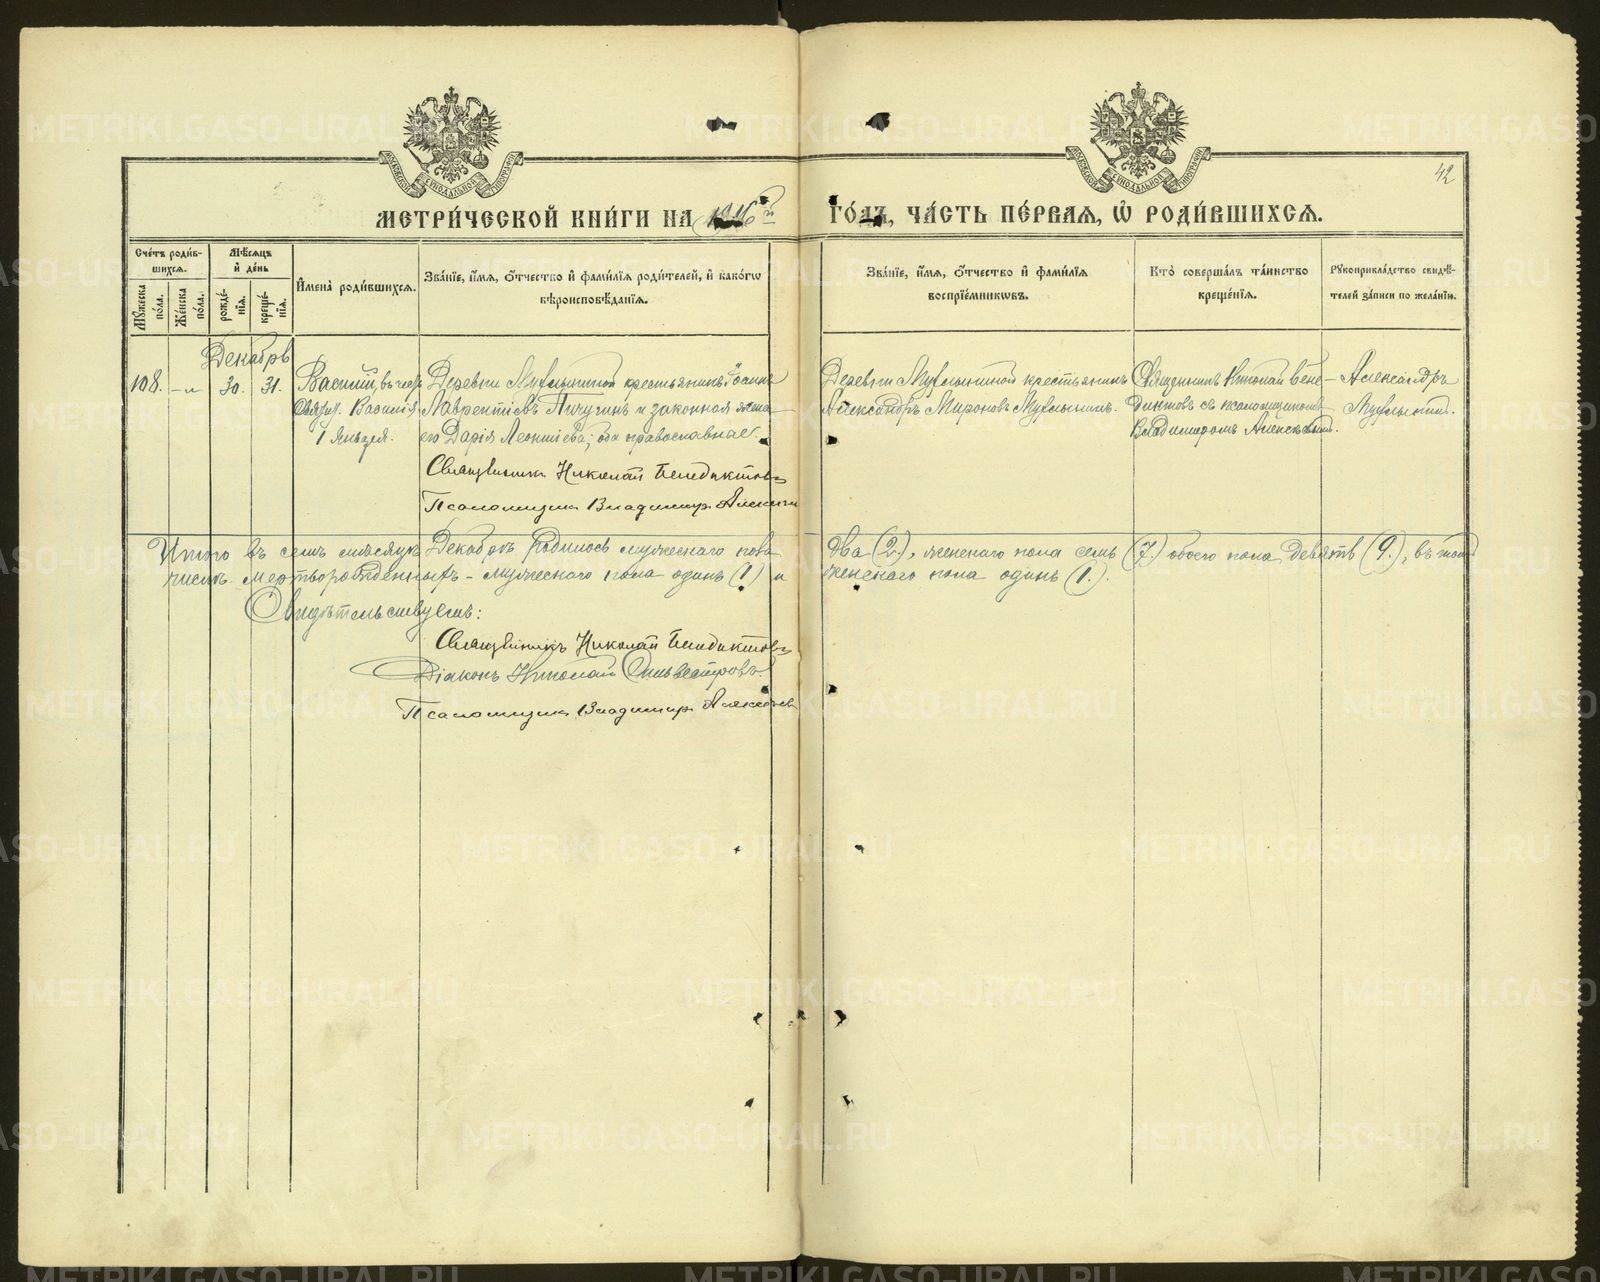 42
МЕТРИ́ЧЕСКОЙ КНИ́ГИ НА 1916й ГО́ДЪ, ЧА́СТЬ ПЕ́РВАЯ, Ѡ РОДИ́ВШИХСЯ.
Сче́тъ роди́вшихся.
Мꙋ́жеска по́ла.
Же́нска по́ла.
Мѣ́сяцъ и҆ де́нь
рожде́нїя.
креще́нїя.
И҆мена̀ роди́вшихся.
Зва́нїе, и҆́мя, ѻ҆́тчество и҆ фами́лїя роди́телей, и҆ како́гѡ
вѣроисповѣ́данїя.
Зва́нїе, и҆́мя, ѻ҆́тчество и҆ фами́лїя
воспрїе́мникѡвъ.
Кто̀ соверша́лъ та́инство
креще́нїя.
Рꙋкоприкла́дство свидѣ́-
телей за́писи по жела́нїю.
Декабрь
108.
30.
31.
Василій, въ честь
Василія
1 Января.
Деревни крестьянинъ Іоаннъ
Лаврентіевъ Пичугинъ и законная жена
его Дарія Леонтіева; оба православные.
Священникъ Николай Бенедиктовъ
Псаломщикъ Владимир
Деревни крестьянинъ
Александръ Мироновъ
Священникъ Николай Бене-
диктовъ съ псаломщикомъ
Владимиромъ
Александръ
Итого въ семъ мѣсяцѣ Декабрѣ родилось мужескаго пола два (2.), женскаго пола семь (7.) обоего пола девять (9.), въ томъ
числѣ мертворожденныхъ - мужескаго пола одинъ (1) и женскаго пола одинъ (1.).
Свидѣтельствуемъ:
Священникъ Николай Бенедиктовъ
Діаконъ Николай Сильвестровъ.
Псаломщикъ Владимир
METRIKI.GASO-URAL.RU